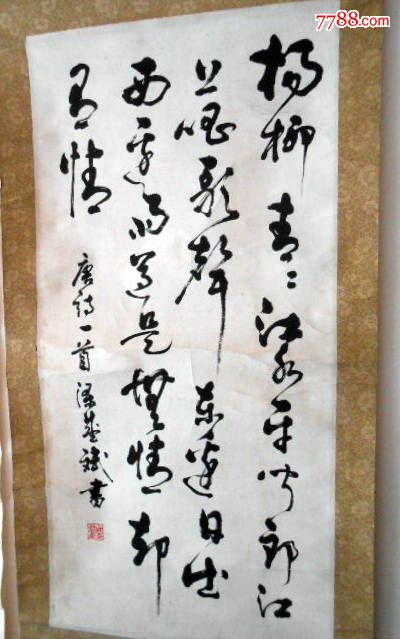 7788.com
杨柳青々江水平闻郎江
上唱歌聲东邊日出
西邊雨道是無情却
有情
唐诗一首 書